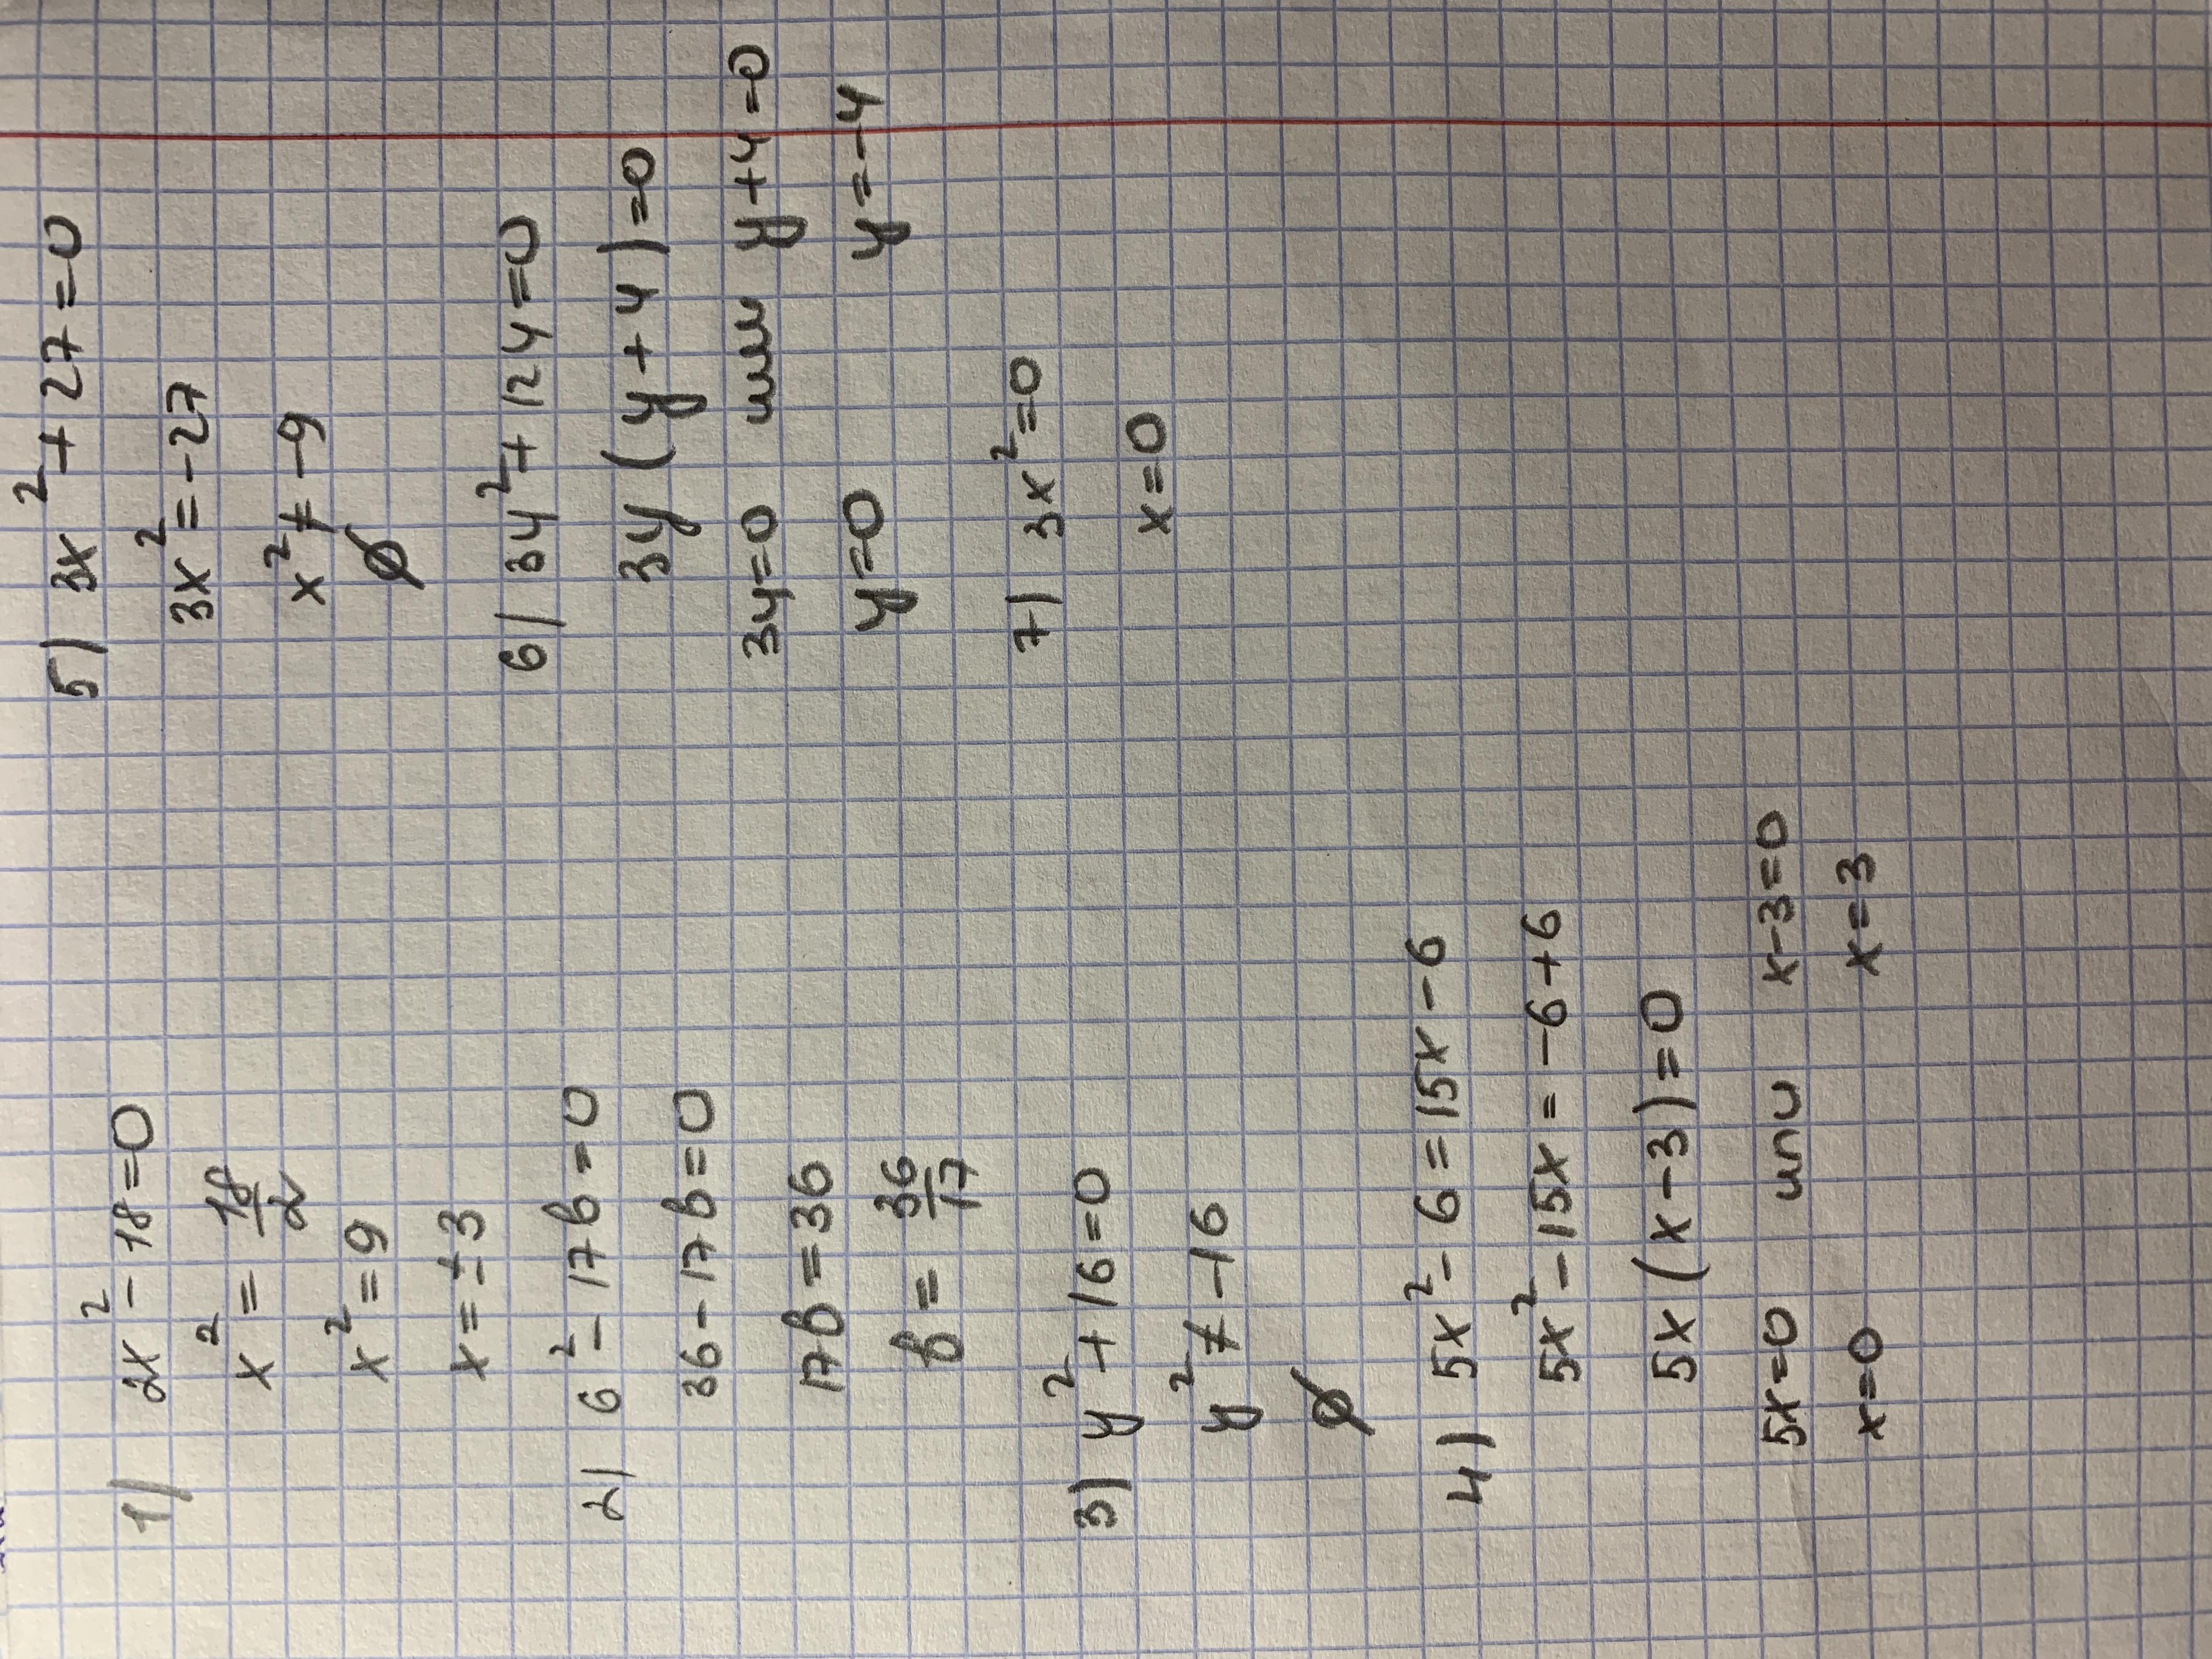 1) 2x² - 18 = 0
x² = 18/2
x² = 9
x = ±3
2) 6² - 17b = 0
36 - 17b = 0
17b = 36
b = 36/17
3) y² + 16 = 0
y² ≠ -16
∅
4) 5x² - 6 = 15x - 6
5x² - 15x = -6 + 6
5x (x - 3) = 0
5x = 0 или x - 3 = 0
x = 0 x = 3
5) 3x² + 27 = 0
3x² = -27
x² ≠ -9
∅
6) 3y² + 12y = 0
3y (y + 4) = 0
3y = 0 или y + 4 = 0
y = 0 y = -4
7) 3x² = 0
x = 0